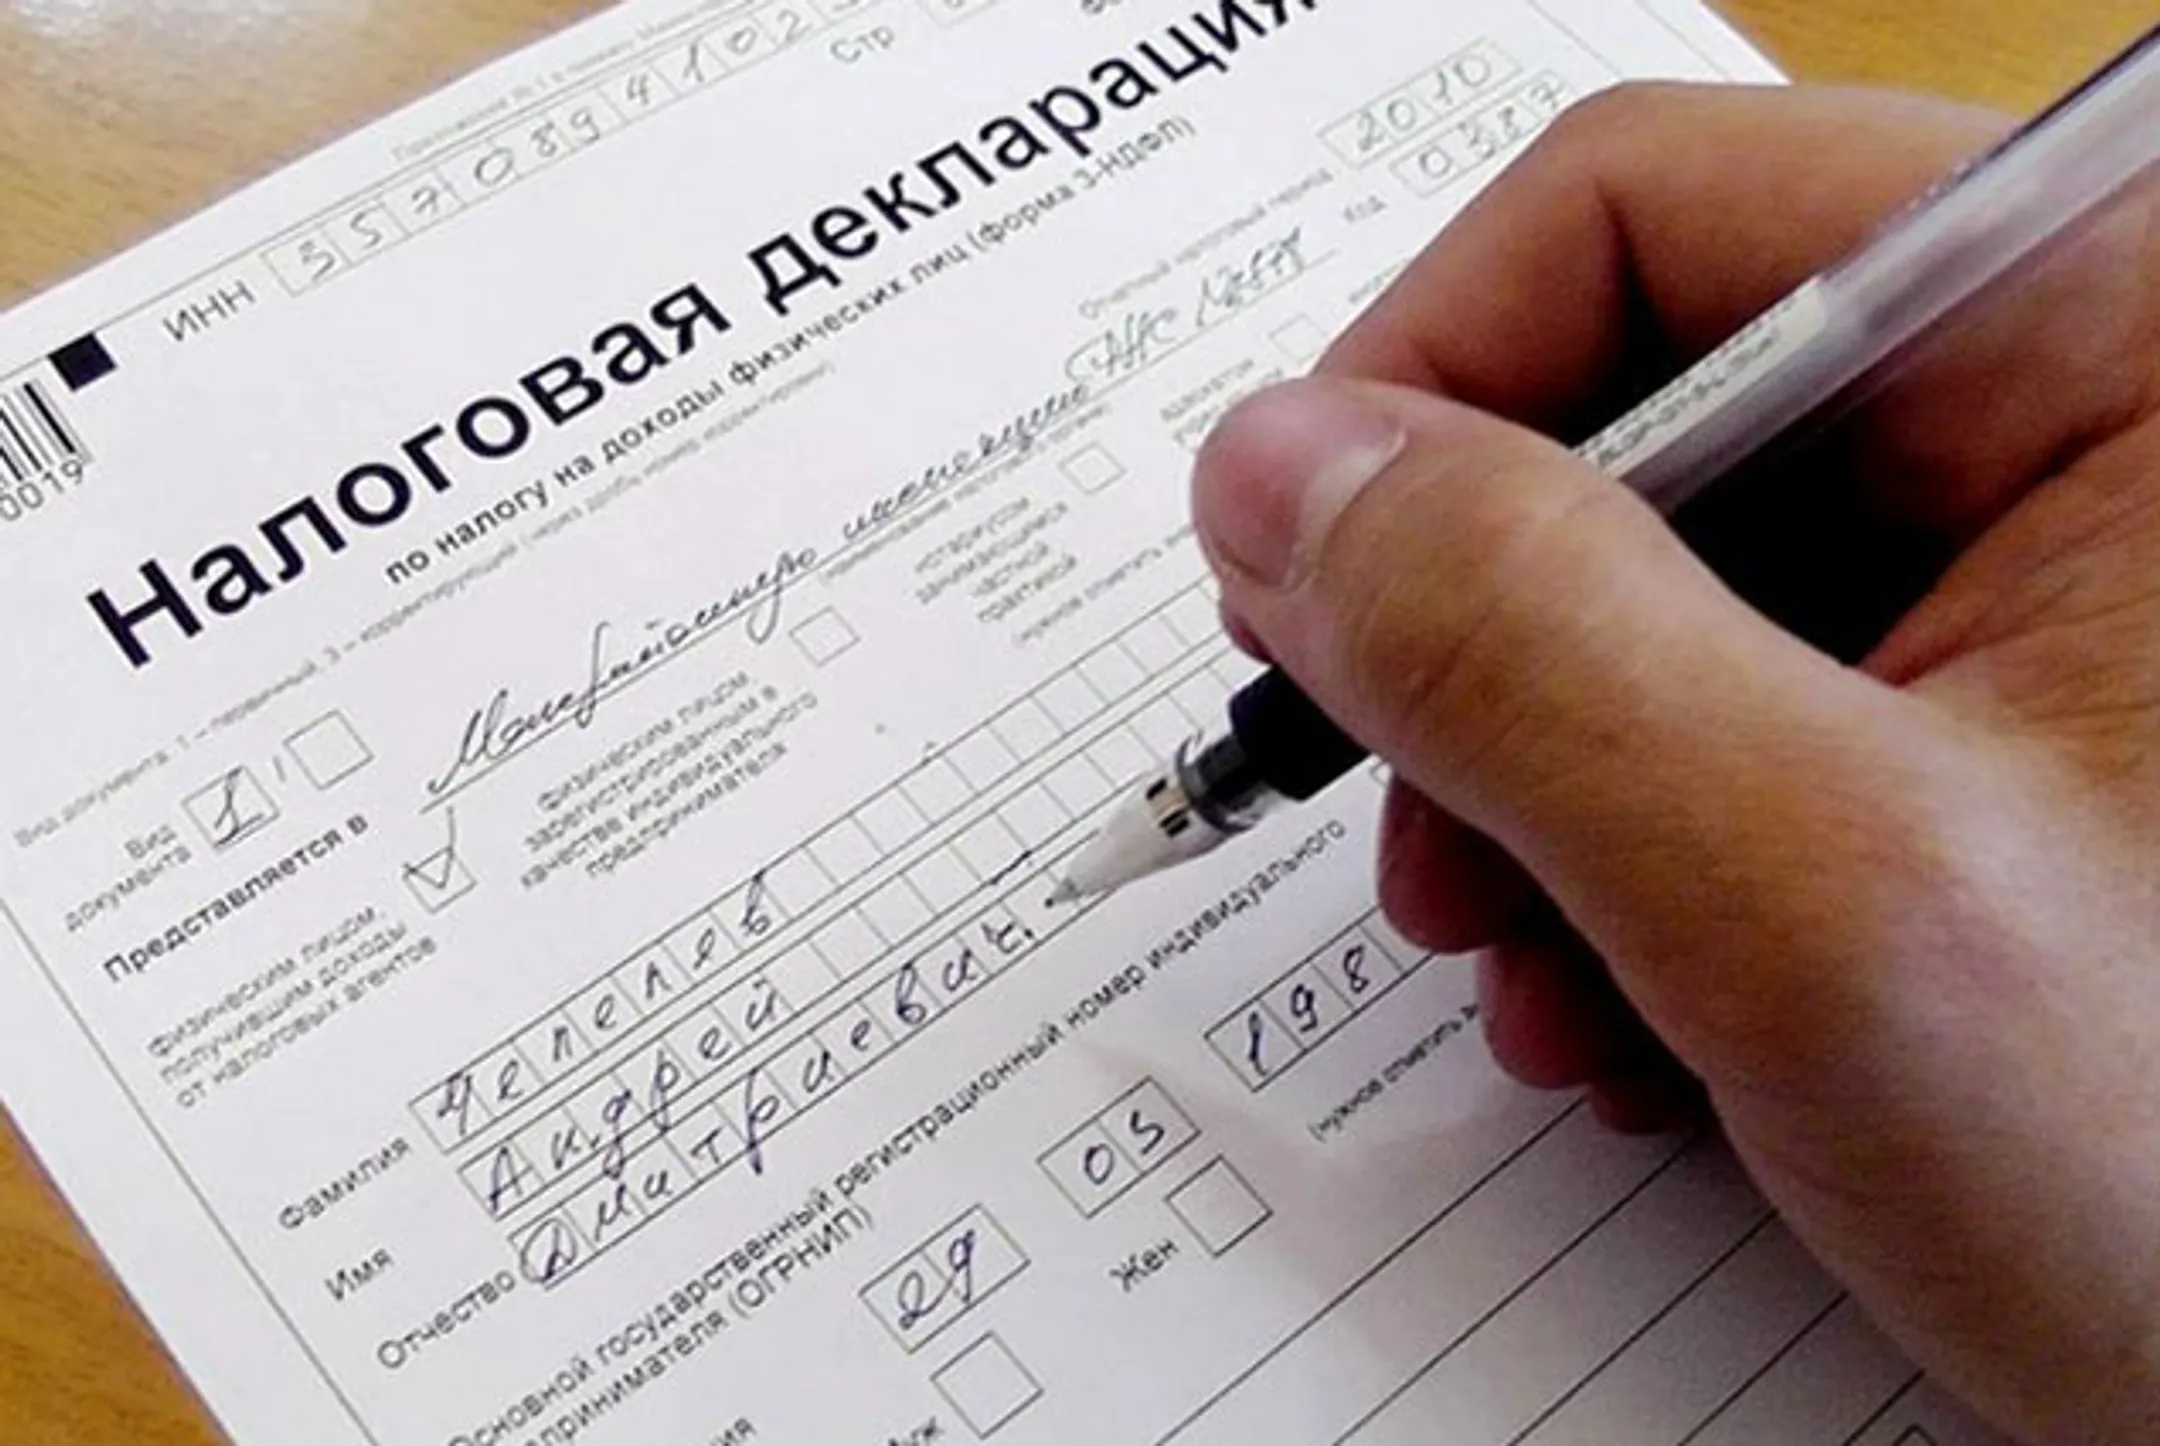 ИНН 5570894102
Стр
Налоговая декларация
по налогу на доходы физических лиц (форма 3-НДФЛ)
0019
Отчетный налоговый период 2010
Код
Вид документа: 1 – первичный, 3 – корректирующий (через дробь номер корректировки)
Вид
документа 1 /
Представляется в
инспекцию
физическим лицом,
получившим доходы
от налоговых агентов
физическим лицом,
зарегистрированным в
качестве индивидуального
предпринимателя
нотариусом,
занимающимся
частной
практикой
адвокатом
(нужное отметить
Фамилия Чепелев
Имя Андрей
Отчество Дмитриевич
Основной государственный регистрационный номер индивидуального
предпринимателя (ОГРНИП)
29 05 198
(нужное отметить
Жен